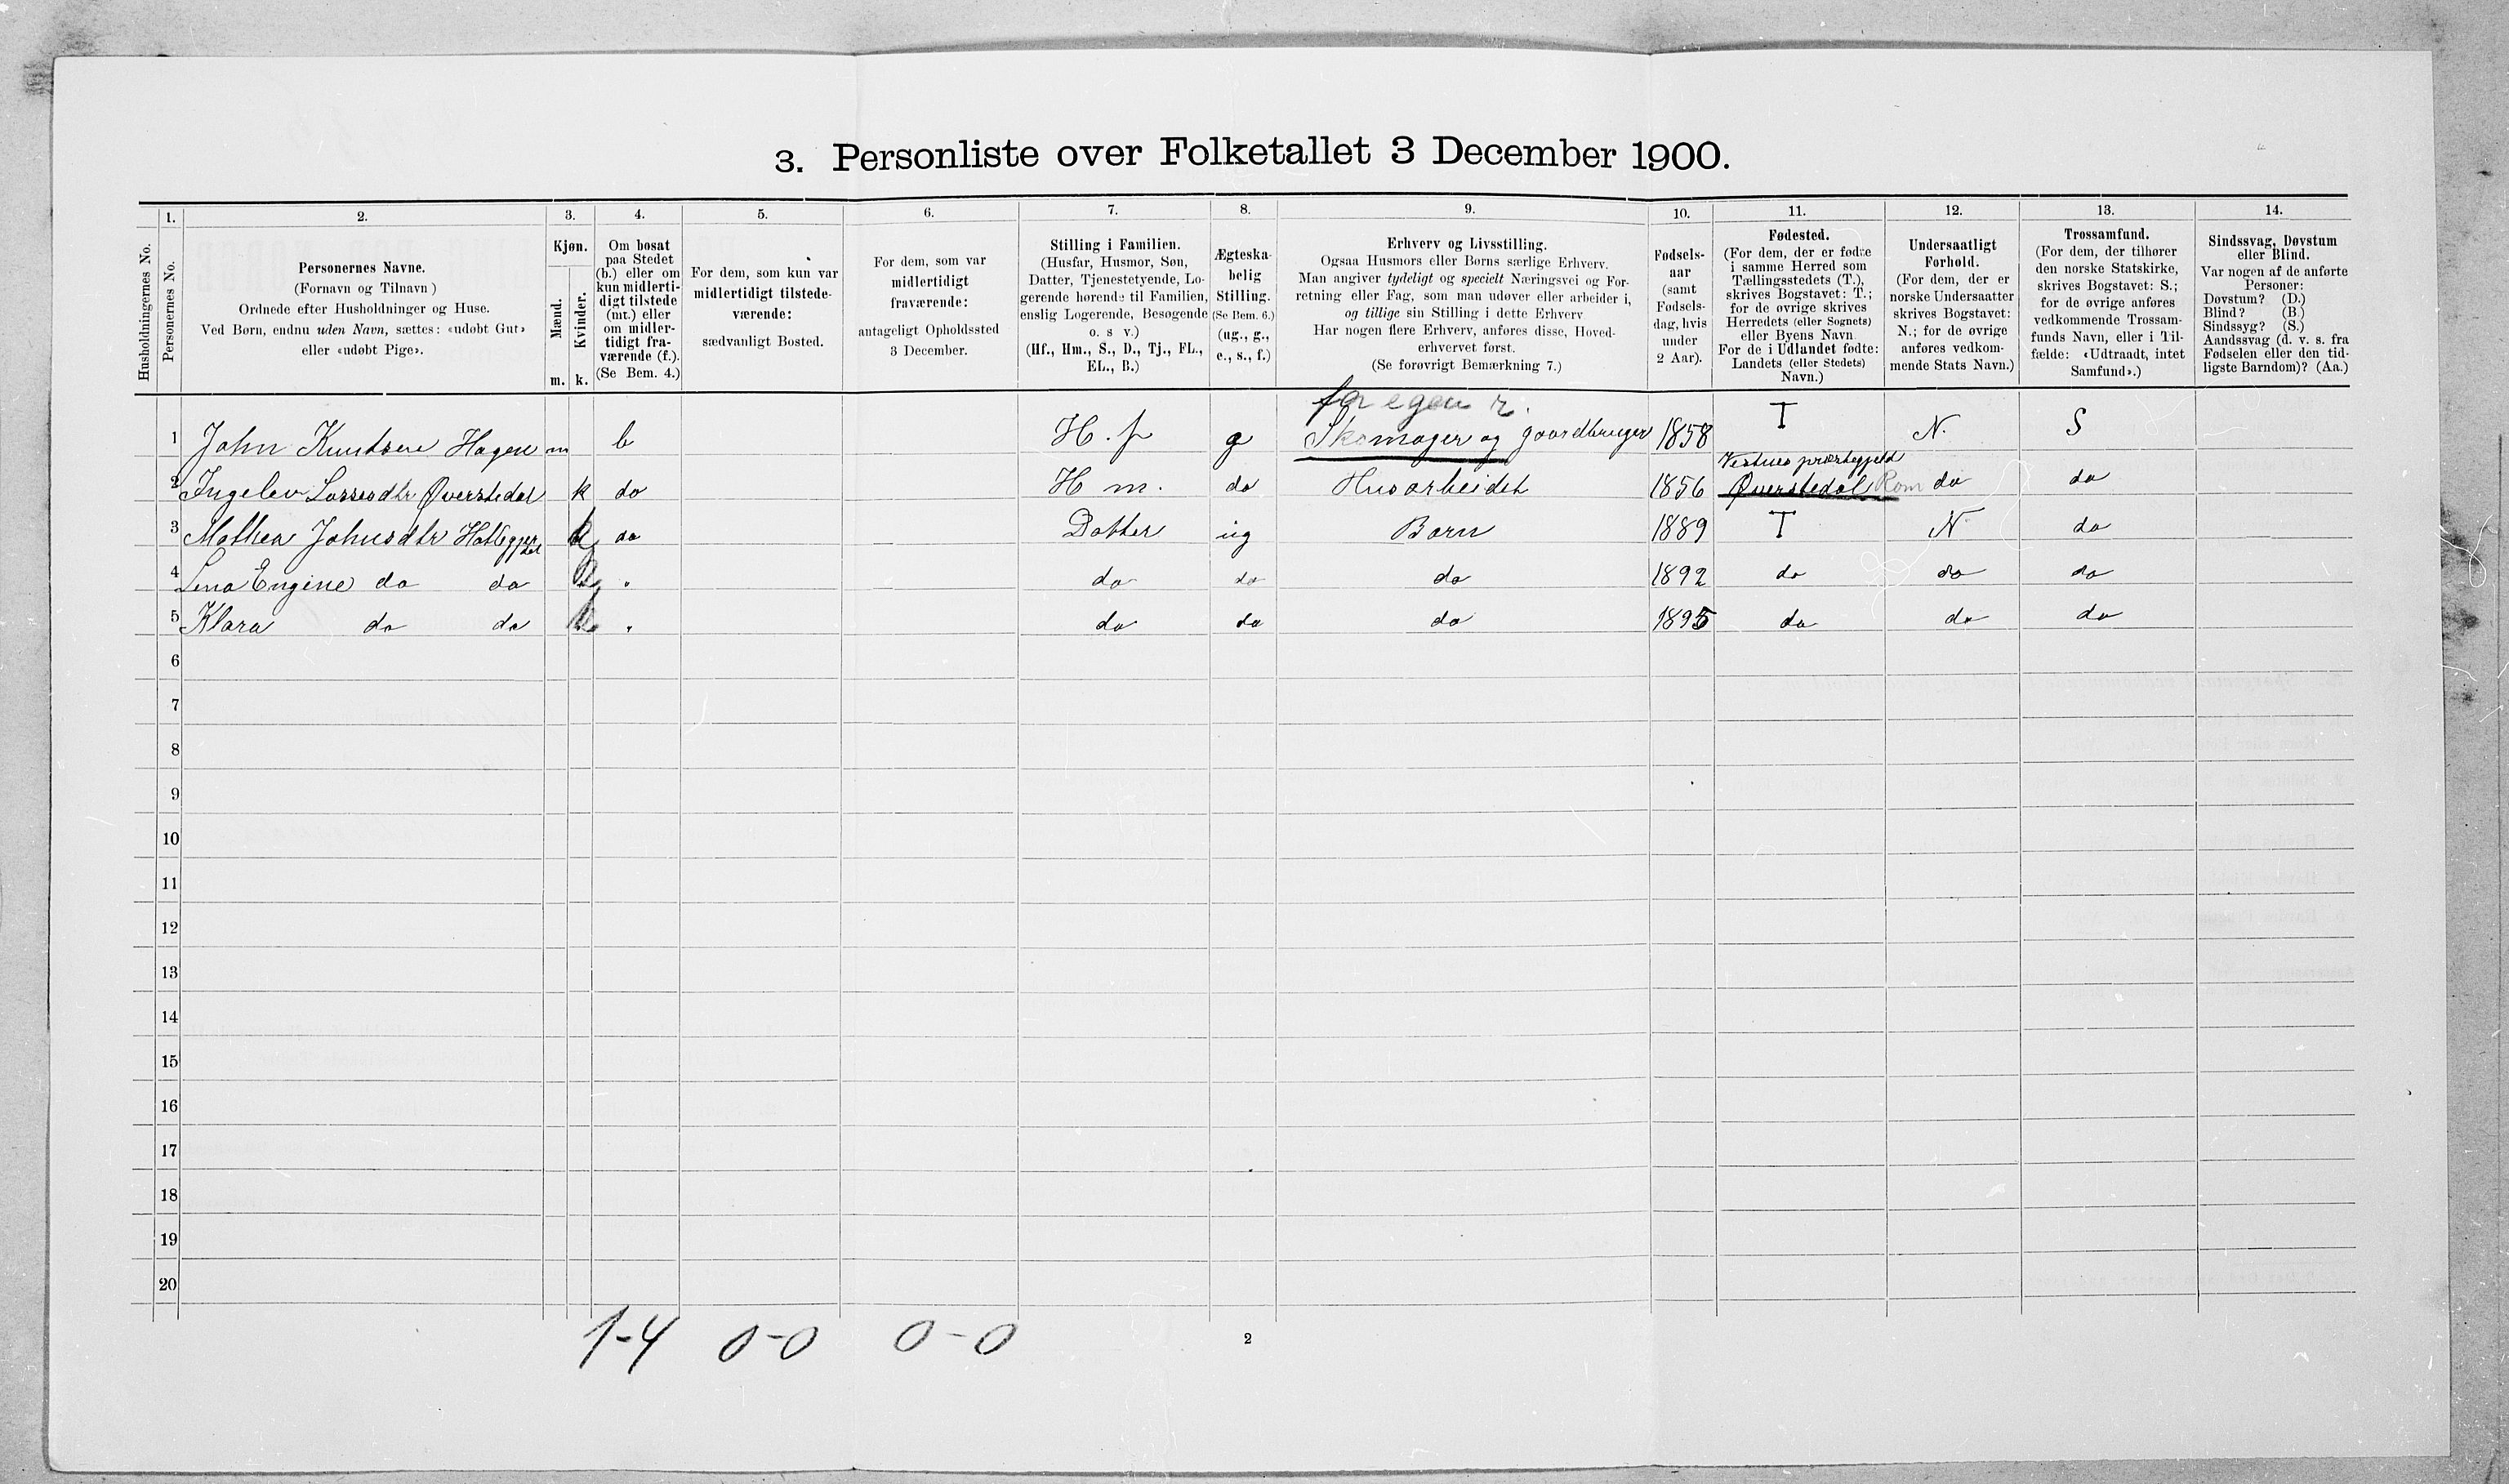 3. Personliste over Folketallet 3 December 1900.
Husholdningernes No.
1.
Personernes No.
2.
Personernes Navne.
(Fornavn og Tilnavn)
Ordnede efter Husholdninger og Huse.
Ved Børn, endnu uden Navn, sættes: «udøbt Gut»
eller «udøbt Pige».
3.
Kjøn.
Mænd.
Kvinder.
m. k.
4.
Om bosat
paa Stedet
(b.) eller om
kun midlerti-
digt tilstede
(mt.) eller
om midler-
tidigt fra-
værende (f.).
(Se Bem. 4.)
5.
For dem, som kun var
midlertidigt tilstede-
værende:
sædvanligt Bosted.
6.
For dem, som var
midlertidigt
fraværende:
antageligt Opholdssted
3 December.
7.
Stilling i Familien.
(Husfar, Husmor, Søn,
Datter, Tjenestetyende, Lo-
gerende hørende til Familien,
enslig Logerende, Besøgende
o. s v.)
(Hf., Hm., S., D., Tj., FL.,
EL., B.)
8.
Ægteska-
belig
Stilling.
(Se Bem. 6.)
(ug., g.,
e., s., f.)
9.
Erhverv og Livsstilling.
Ogsaa Husmors eller Børns særlige Erhverv.
Man angiver tydeligt og specielt Næringsvei og For-
retning eller Fag, som man udøver eller arbeider i,
og tillige sin Stilling i dette Erhverv
Har nogen flere Erhverv, anføres disse, Hoved-
erhvervet først.
(Se forøvrigt Bemærkning 7.)
10.
Fødsels-
aar
(samt
Fødsels-
dag, hvis
under
2 Aar).
11.
Fødested.
(For dem, der er fødte
i samme Herred som
Tællingsstedets (T.),
skrives Bogstavet: T.;
for de øvrige skrives
Herredets (eller Sognets)
eller Byens Navn
For de i Udlandet fødte:
Landets (eller Stedets)
Navn.)
12.
Undersaatligt
Forhold.
(For dem, der er
norske Undersaatter
skrives Bogstavet:
N.; for de øvrige
anføres vedkom-
mende Stats Navn.)
13.
Trossamfund.
(For dem, der tilhører
den norske Statskirke,
skrives Bogstavet: S.;
for de øvrige anføres
vedkommende Trossam-
funds Navn, eller i Til-
fælde: «Udtraadt, intet
Samfund».)
14.
Sindssvag, Døvstum
eller Blind.
Var nogen af de anførte
Personer:
Døvstum? (D.)
Blind? (B.)
Sindssyg? (S.)
Aandssvag (d. v. s. fra
Fødselen eller den tid-
ligste Barndom)? (Aa.)
for egen r.
1 John Knudsen Hagen m b H.f g Skomager og gaardbruger 1858 T N. S
Vestnes præstegjeld
2 Ingelev Lassesdtr Øverstedal k do H m. do Husarbeidet 1856 Øverstedal Rom do do
3 Mathea Johnsdtr k do Datter ug Barn 1889 T N do
4 Lena Engine do do k " do do do 1892 do do do
5 Klara do do k " do do do 1895 do do do
6
7
8
9
10
11
12
13
14
15
16
17
18
19
20
1-4 0-0 0-0
2